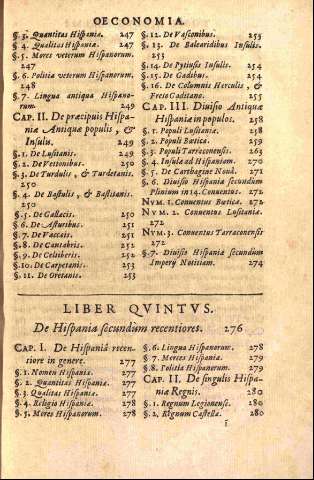 OECONOMIA.
§. 3. Quantitas Hispaniæ. 247
§. 4. Qualitas Hispaniæ. 247
§. 5. Mores veterum Hispanorum.
247
§. 6. Politia veterum Hispanorum.
248
§. 7. Lingua antiqua Hispano-
rum. 249
CAP. II. De præcipuis Hispa-
niæ Antiquæ populis, &
Insulis. 249
§. 1. De Lusitanis. 249
§. 2. De Vettonibus. 250
§. 3. De Turdulis, & Turdetanis.
250
§. 4. De Bastulis, & Bastitanis.
250
§. 5. De Gallæcis. 250
§. 6. De Asturibus. 251
§. 7. De Vaccæis. 251
§. 8. De Cantabris. 252
§. 9. De Celtiberis. 252
§. 10. De Carpetanis. 253
§. 11. De Oretanis. 253
§. 12. De Vasconibus. 253
§. 13. De Balearidibus Insulis.
253
§. 14. De Pytiusis Insulis. 254
§. 15. De Gadibus. 254
§. 16. De Columnis Herculis, &
Freto Gaditano. 255
CAP. III. Diuisio Antiquæ
Hispaniæ in populos. 258
§. 1. Populi Lusitaniæ. 258
§. 2. Populi Bæticæ. 259
§. 3. Populi Tarraconensis. 263
§. 4. Insulæ ad Hispaniam. 270
§. 5. De Carthagine Nouâ. 271
§. 6. Diuisio Hispaniæ secundùm
Plinium in 14. Conuentus. 272
NVM. 1. Conuentus Bæticæ. 272
NVM. 2. Conuentus Lusitaniæ.
272
NVM. 3. Conuentus Tarraconensis
272
§. 7. Diuisio Hispaniæ secundùm
Imperij Notitiam. 274
LIBER QVINTVS.
De Hispania secundùm recentiores. 276
CAP. I. De Hispaniâ recen-
tiore in genere. 277
§. 1. Nomen Hispaniæ. 277
§. 2. Quantitas Hispaniæ. 277
§. 3. Qualitas Hispaniæ. 277
§. 4. Religio Hispaniæ. 278
§. 5. Mores Hispanorum. 278
§. 6. Lingua Hispanorum. 278
§. 7. Merces Hispaniæ. 279
§. 8. Politia Hispanorum. 279
CAP. II. De singulis Hispa-
niæ Regnis. 280
§. 1. Regnum Legionense. 280
§. 2. Regnum Castellæ. 280